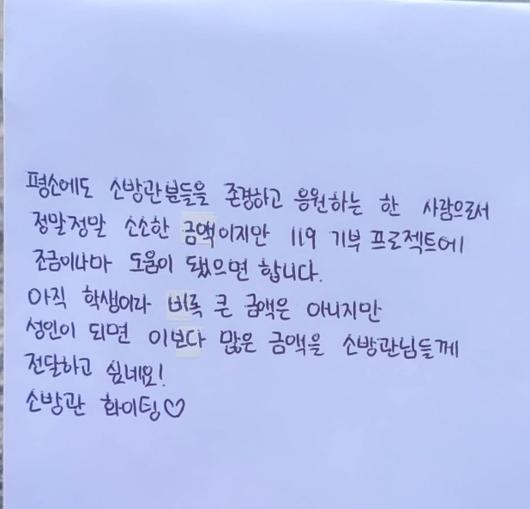 평소에도 소방관분들을 존경하고 응원하는 한 사람으로서
정말정말 소소한 금액이지만 119 기부 프로젝트에
조금이나마 도움이 됐으면 합니다.
아직 학생이라 비록 큰 금액은 아니지만
성인이 되면 이보다 많은 금액을 소방관님들께
전달하고 싶네요!
소방관 화이팅♡